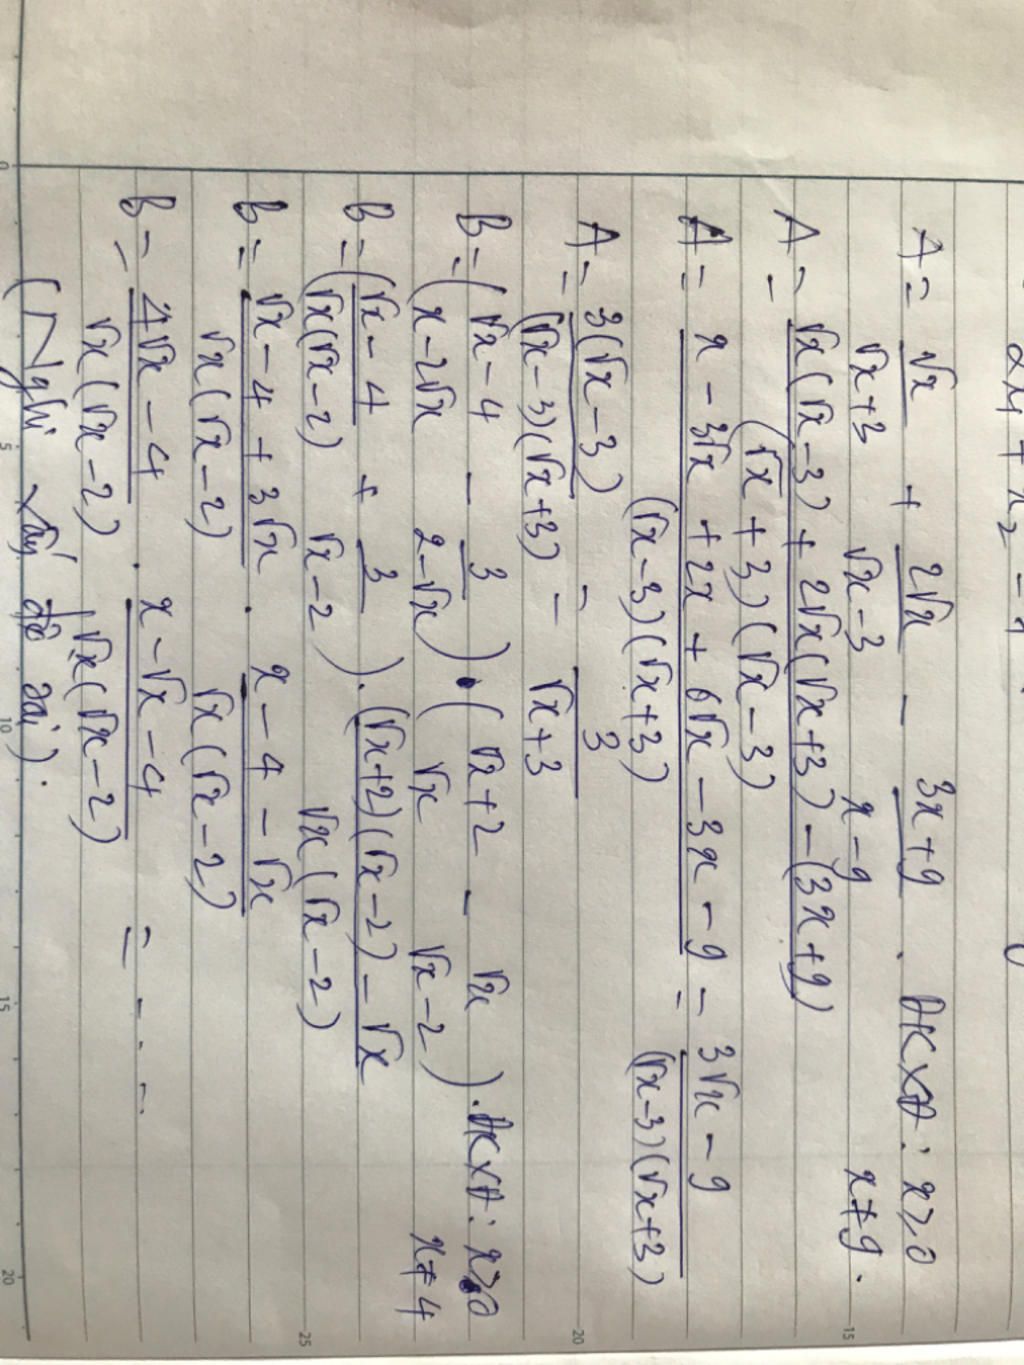 2x1 + x2 = 1
A = √x/(√x+3) + 2√x/(√x-3) - (3x+9)/(x-9) . ĐKXĐ: x≥0
x≠9.
A = (√x(√x-3) + 2√x(√x+3) - (3x+9))/((√x+3)(√x-3))
A = (x - 3√x + 2x + 6√x - 3x - 9)/((√x-3)(√x+3)) = (3√x - 9)/((√x-3)(√x+3))
A = 3(√x-3)/((√x-3)(√x+3)) = 3/(√x+3)
B = ((√x-4)/(x-2√x) - 3/(2-√x)) . ((√x+2)/√x - √x/(√x-2)) . ĐKXĐ: x>0
x≠4
B = ((√x-4)/(√x(√x-2)) + 3/(√x-2)) . ((√x+2)(√x-2) - √x)/(√x(√x-2))
B = (√x-4+3√x)/(√x(√x-2)) . (x-4-√x)/(√x(√x-2))
B = (4√x-4)/(√x(√x-2)) . (x-√x-4)/(√x(√x-2)) = ...
(Nghi vấn đề sai).
0 5 10 15 20
15
20
25